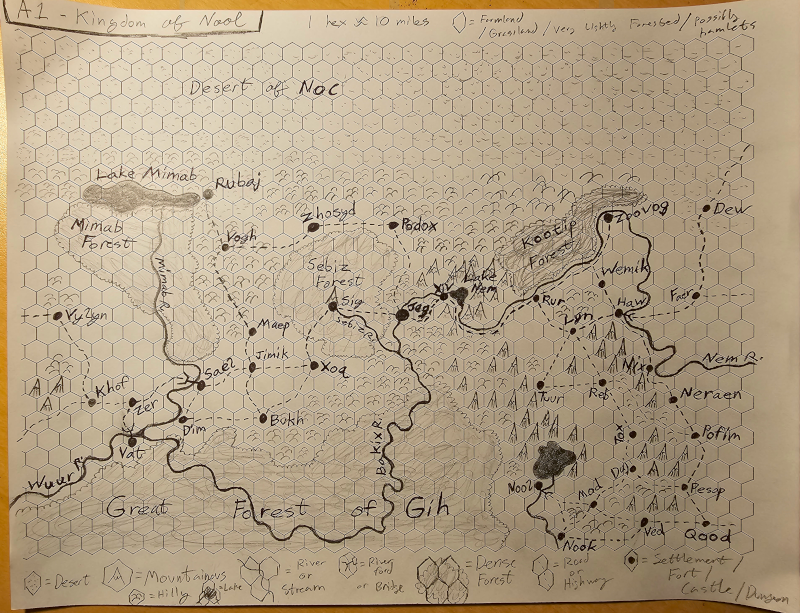 A1 - Kingdom of Nool
1 hex ≈ 10 miles
= Farmland
/ Grassland / Very Lightly Forested / Possibly
hamlets
Desert of Noc
Lake Mimab
Rubaj
Mimab
Forest
Mimab R.
Vogh
Zhosyd
Podox
Sebiz
Forest
Sig
Sebiz R.
Jagi
Xiv
Lake
Nem
Kootip
Forest
Zoovog
Dew
Wemik
Faer
Rur
Haw
Lyn
Vyzyn
Maep
Jimik
Xoq
Nix
Nem R.
Khof
Zer
Saez
Tuur
Reb
Neraen
Dim
Bukh
Vat
Bakix R.
Tox
Pofim
Wuur R.
Great Forest of Gih
Nool
Daj
Mod
Pesap
Nook
Ved
Qood
= Desert
= Mountainous
= Hilly
= Lake
= River
or
Stream
= River
ford
or Bridge
= Dense
Forest
= Road
or
Highway
= Settlement /
Fort /
Castle / Dungeon